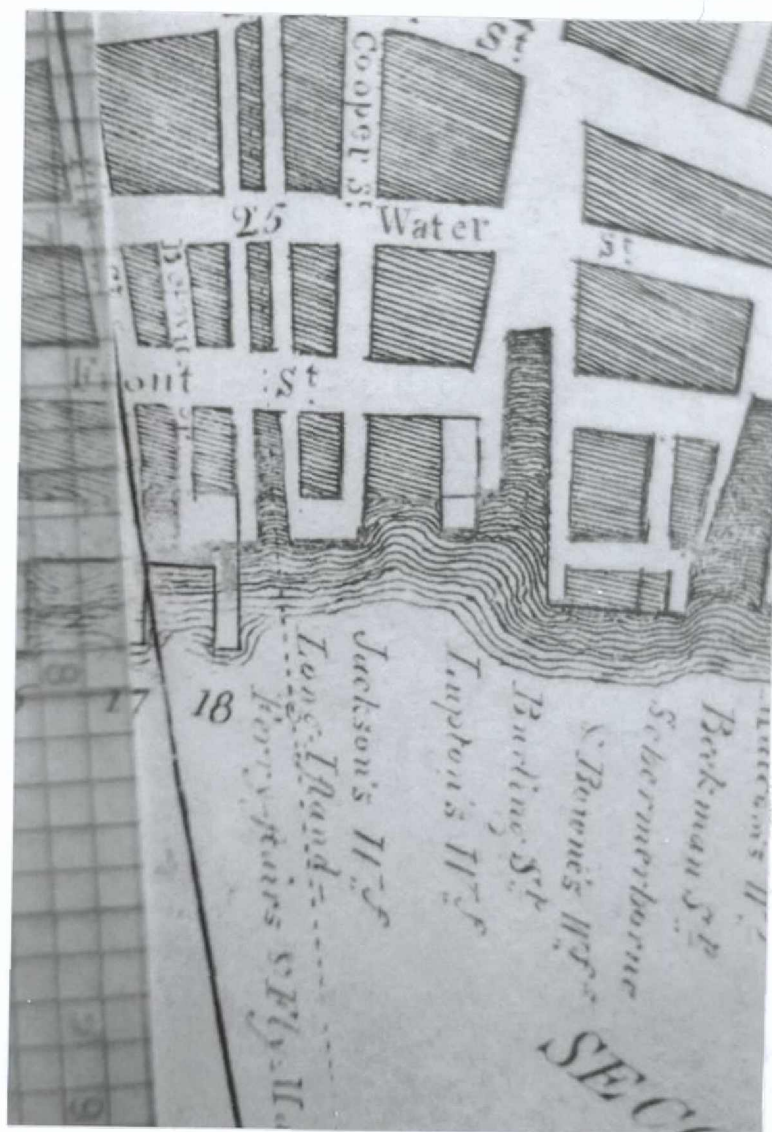 St.
Cooper St.
25
Water
St.
ont
St.
17
18
Long Island=
Ferry-stairs & Fly
Jackson's Wf
Lupton's Wf
Burling Sp
& Bowne's Wfs
Schermerhorne
Beekman Sp
SECO